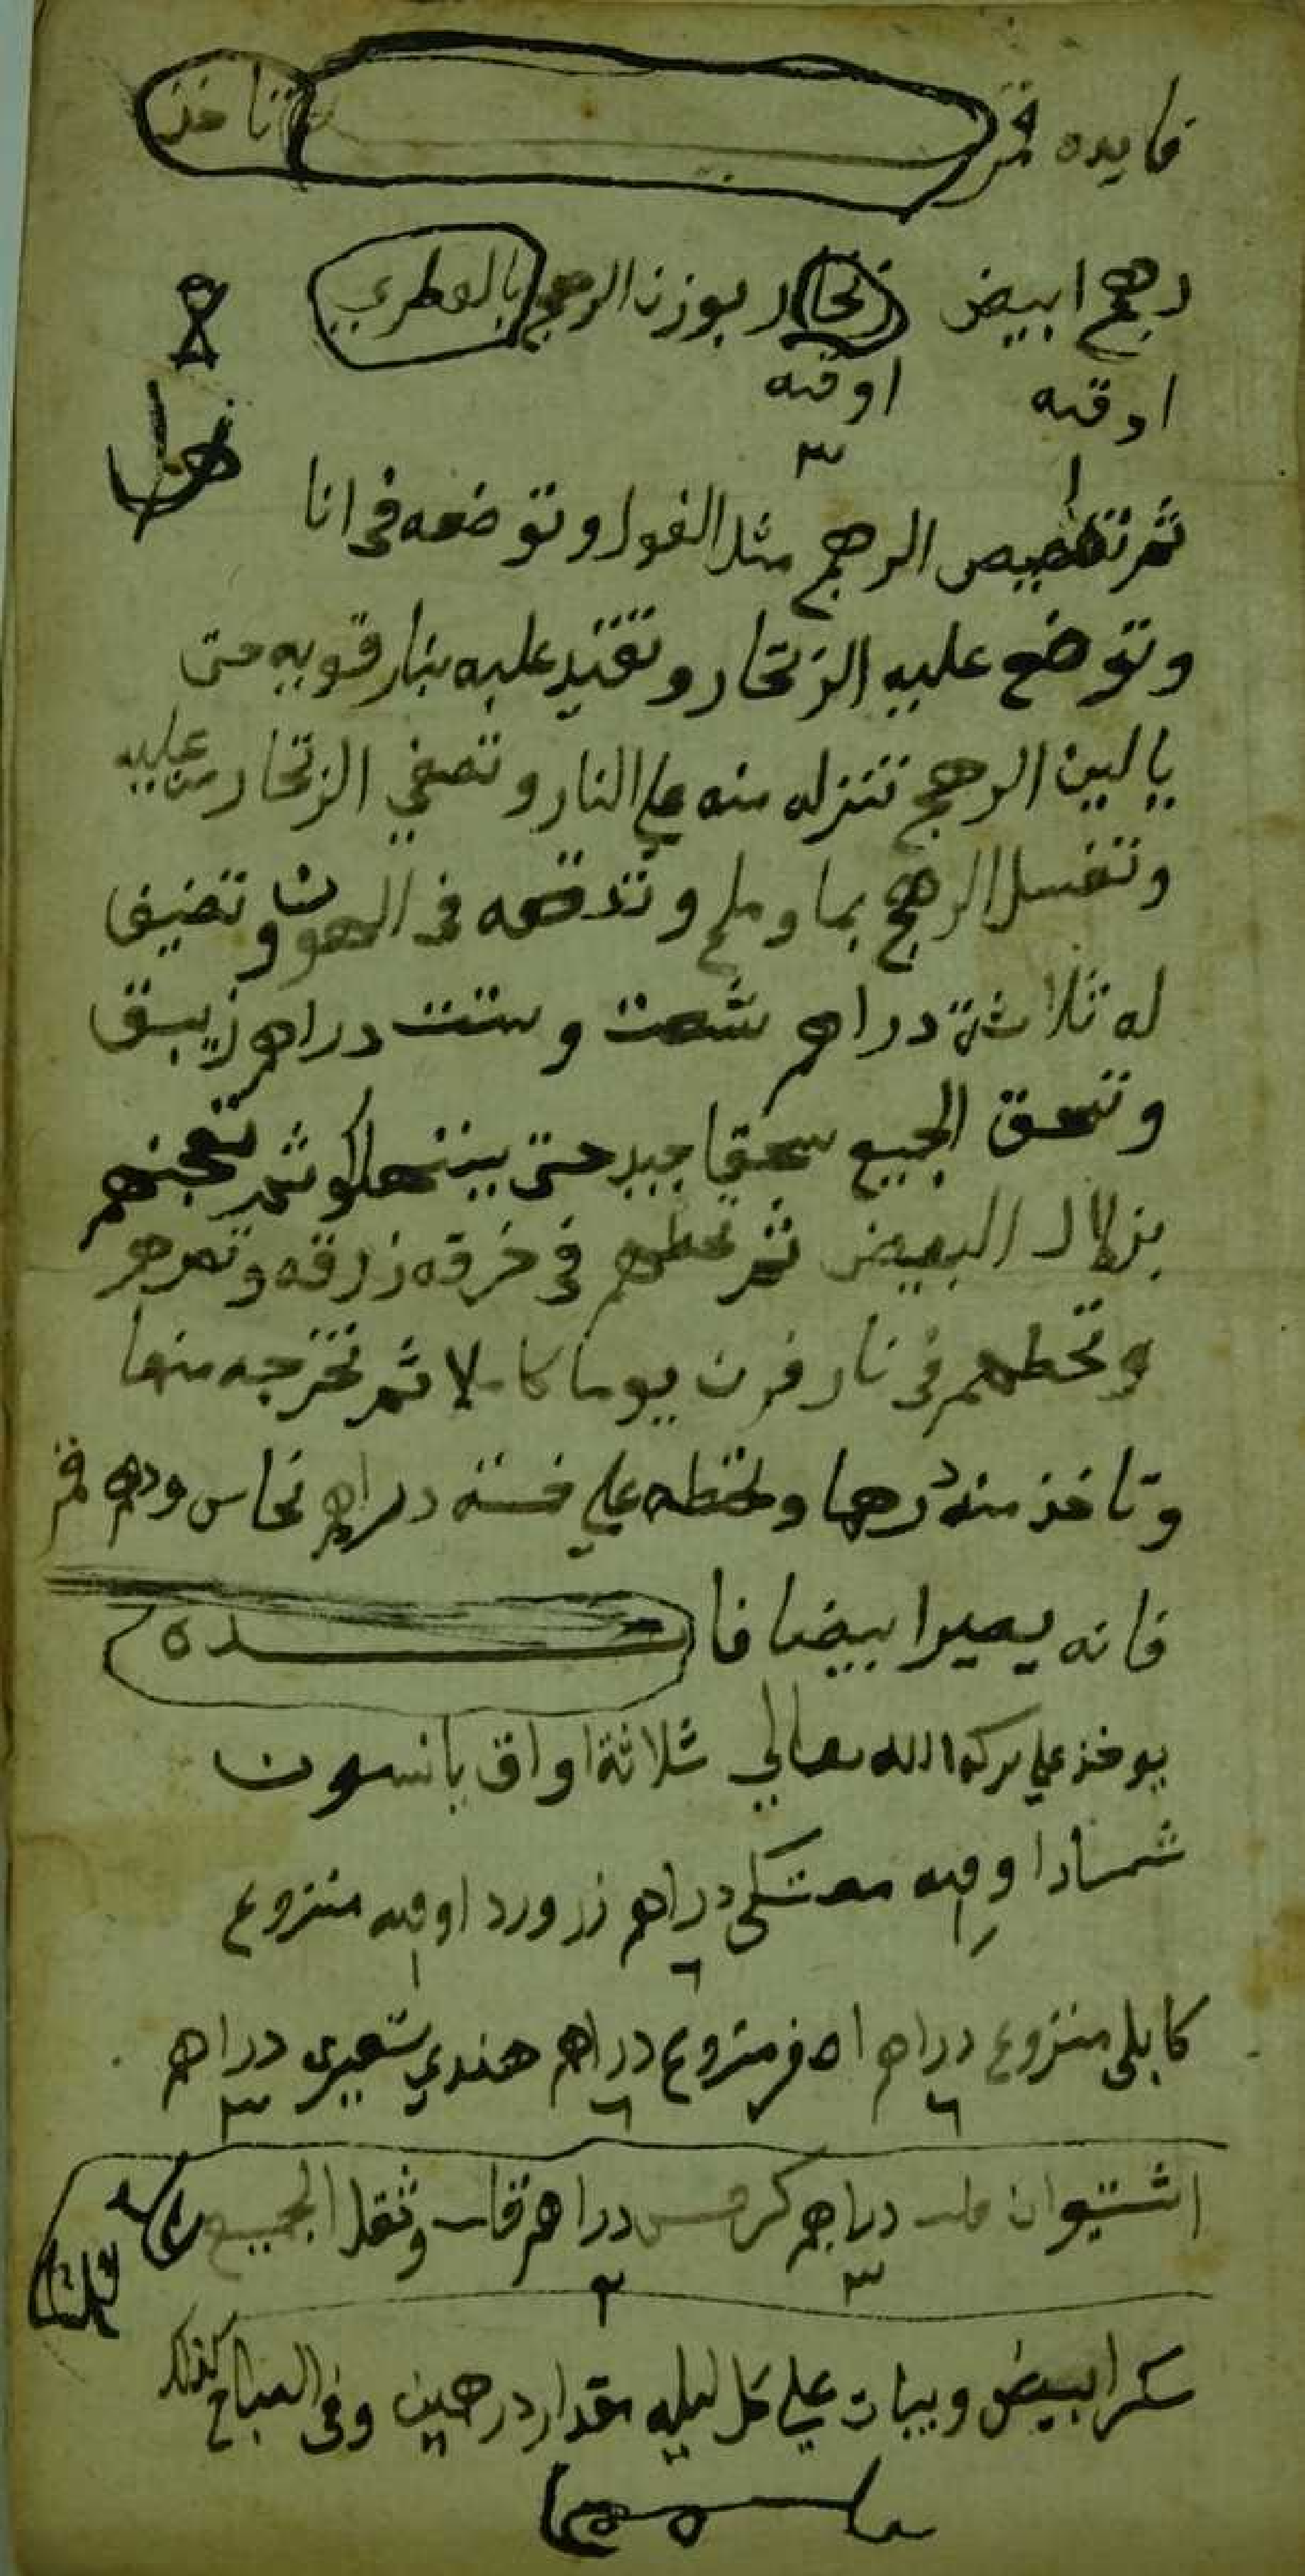 فايده قمر تاخذ
رهج ابيض زنجار بوزن الرهج بالمطري
اوقه اوقه
١ ٣
ثم تصيص الرهج مثل الفول وتوضعه في انا
وتوضع عليه الزنجار وتقيد عليه بنار قويه حتى
يا لين الرهج تنزله منه على النار وتصفي الزنجار من عليه
وتغسل الرهج بما وملح وتدقه في الهون وتضيف
له ثلاثة دراهم شعت وستت دراهم زيبق
وتسحق الجميع سحقا جيد حتى ينتهلكو ثم تعجنهم
بزلال البيض ثم تحطهم في خرقه زرقه وتصرهر
وتحطهم في نار فرن يوما كاملا ثم تخرجه منها
وتاخذ منه درهما وتحطه على خمسة دراهم نحاس ودرهم قمر
فانه يصير ابيضا فايده
يوخذ على بركة الله تعالى ثلاثة اواق يانسون
شمار اوقيه مصتكى دراهم زر ورد اوقيه منزوع
٦ ١
كابلى منزوع دراهم اصفر منزوع دراهم هندي شعيرى دراهم
٦ ٦ ٣
دراهم كرفس دراهم وثقل الجميع
٣ ٢
سكر ابيض ويبات على كل ليله مقدار درهمين وفي الصباح كذلك